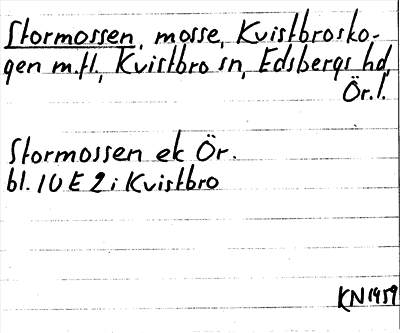 Stormossen, mosse, Kvistbrosko-
gen m.fl., Kvistbro sn, Edsbergs hd,
Ör. l.
Stormossen ek Ör.
bl. 10 E 2 i Kvistbro
KN 1959